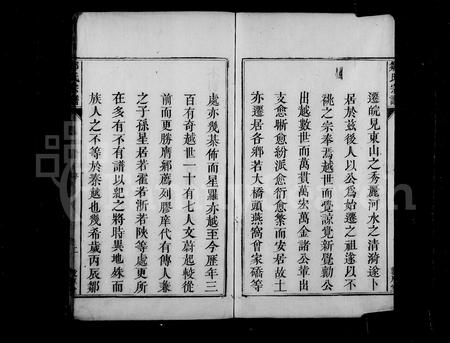 遷皖見東山之秀麗河水之清漪遂卜
居於茲後人以公為始遷之祖遂以不
祧之宗奉焉越世而覺諒覺新覺勳公
出越數世而萬貫萬宏萬金諸公輩出
支愈斷愈紛派愈衍愈繁而安居故土
亦遷居各鄉若大橋頭燕窩曾家碕等
處亦幾棊佈而星羅亦越至今歷年三
百有奇越世一十有七人文蔚起較從
前而更勝濟鄉薦列膠庠代有傳人兼
之子孫星居若霍若浙若陝等處更所
在多有不有譜以紀之將時異地殊而
族人之不等於秦越也幾希歲丙辰鄒